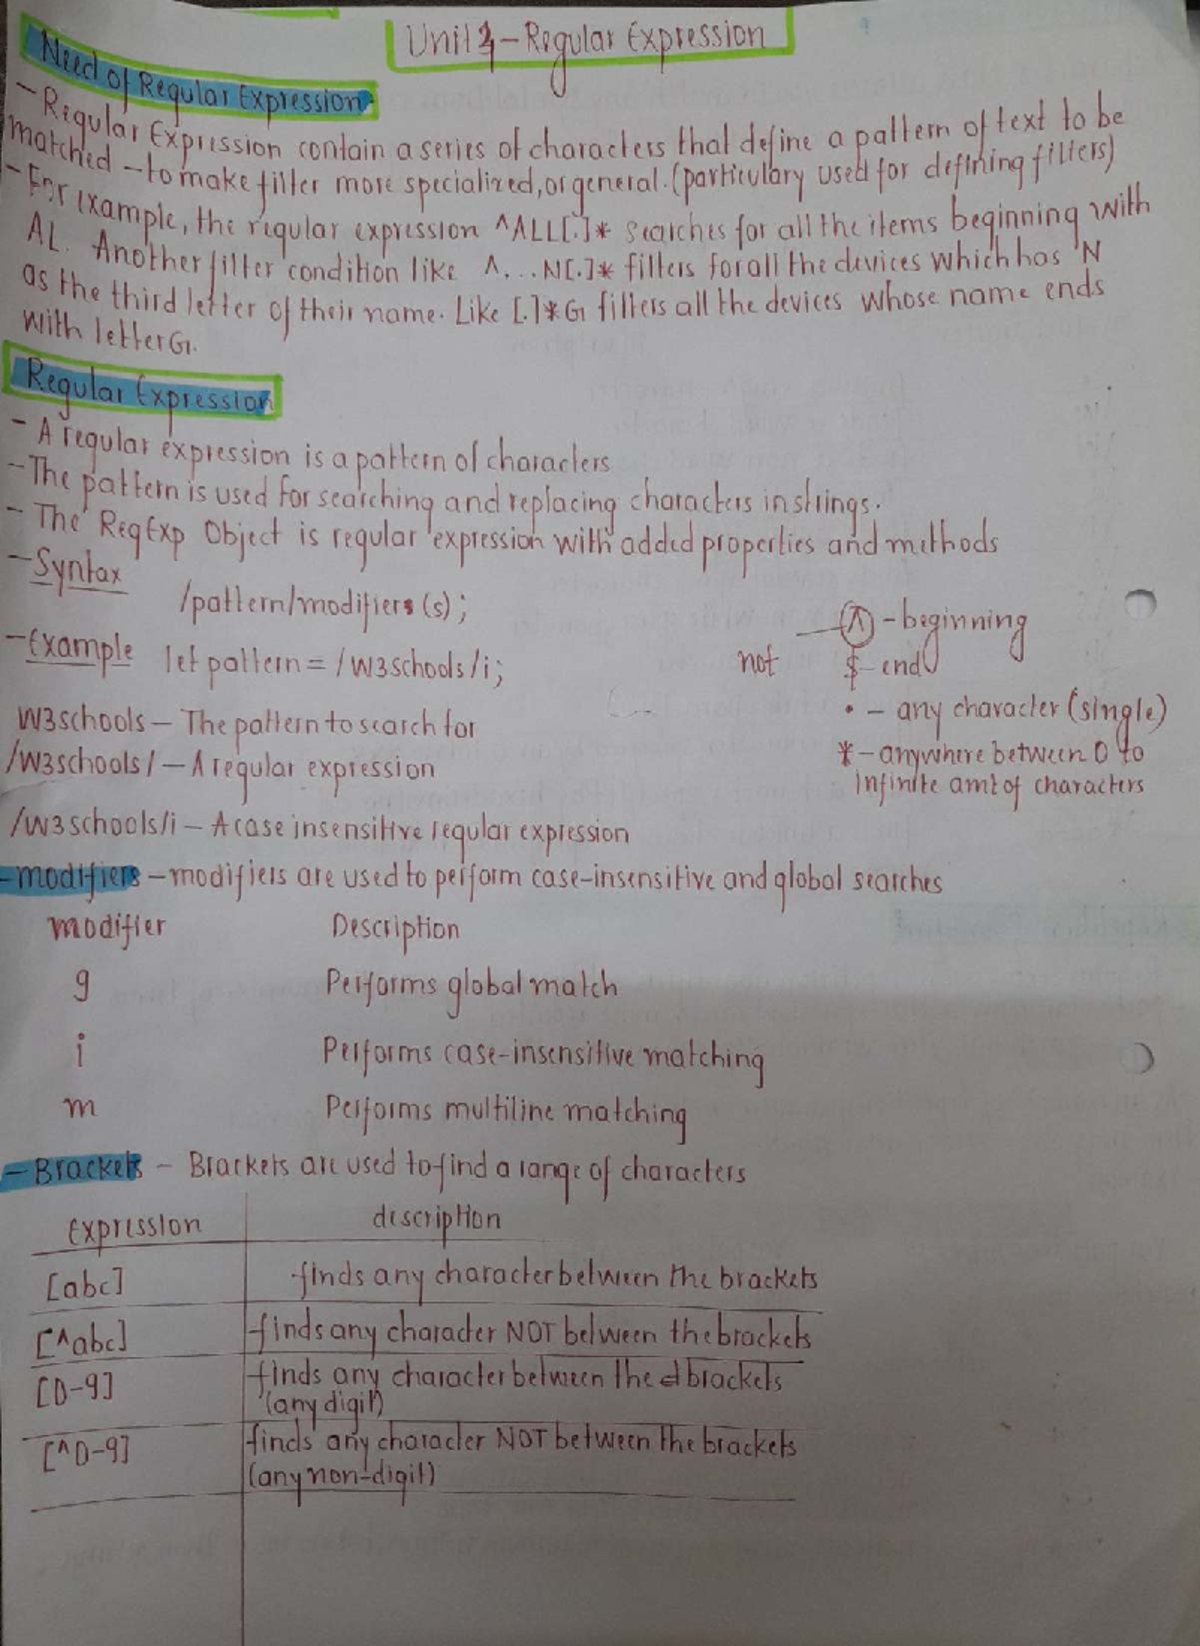 Unit 4 - Regular Expression
Need of Regular Expression -
- Regular Expression contain a series of characters that define a pattern of text to be
matched - to make filter more specialized, or general. (particulary used for defining filters)
- For example, the regular expression ^ALL[.]* searches for all the items beginning with
AL. Another filter condition like ^...N[.]* filters for all the devices which has N
as the third letter of their name. Like [.]*G filters all the devices whose name ends
with letter G.
Regular Expression
- A regular expression is a pattern of characters
- The pattern is used for searching and replacing characters in strings.
- The RegExp Object is regular expression with added properties and methods
- Syntax
/pattern/modifiers(s);
- Example let pattern = /w3schools/i;
not ^ - beginning
$ - end
• - any character (single)
* - anywhere between 0 to
infinite amt of characters
W3schools - The pattern to search for
/W3schools/ - A regular expression
/w3schools/i - A case insensitive regular expression
- modifiers - modifiers are used to perform case-insensitive and global searches
modifier Description
g Performs global match
i Performs case-insensitive matching
m Performs multiline matching
- Brackets - Brackets are used to find a range of characters
expression description
[abc] finds any character between the brackets
[^abc] finds any character NOT between the brackets
[0-9] finds any character between the brackets
(any digit)
[^0-9] finds any character NOT between the brackets
(any non-digit)